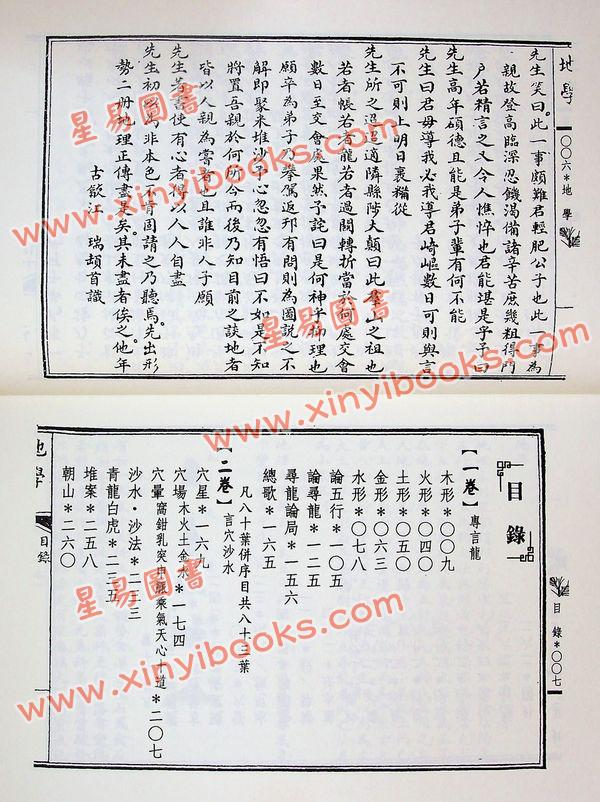 地學
〇〇六*地學
先生笑曰此一事頗難君輕肥公子也此一事為
親故登高臨深忍饑渴備諸辛苦庶幾粗得門
戶若精言之又令人憔悴也君能堪是乎予曰
先生高年碩德且能是弟子輩有何不能
先生曰君毋導我必我導君崎嶇數日可則與言
不可則上明日裹糧從
先生所之迢迢適隣縣陟大顛曰此羣山之祖也
若者帳若者龍若者過關轉折當於何處交會
數日至交會處果然予詫曰是何神乎抑理也
願卒為弟子乃拳駕返邘有問則為圖說之不
解即聚米堆沙予心忽忽有悟曰不如是不知
將置吾親於何所今而後乃知目前之談地者
皆以人親為嘗者也且誰非人子願
先生著書使有心者得以人人自盡
先生初以為非本色不肯固請之乃聽焉先出形
勢二册地理正傳盡是矣其未盡者俟之他年
古歙江 瑞頡首識
目錄*〇〇七
目錄
【一卷】 專言龍
木形*〇〇九
火形*〇四〇
土形*〇五〇
金形*〇六三
水形*〇七八
論五行*一〇五
論尋龍*一二五
尋龍論局*一五六
總歌*一六五
凡八十葉併序目共八十三葉
【二卷】 言穴沙水
穴星*一六九
穴場木火土金水*一七四
穴暈窩鉗乳突
乘氣天心十道*二〇七
沙水·沙法*二三三
青龍白虎*二三五
堆案*二五八
朝山*二六〇
地學
目錄
星易圖書
www.xinyibooks.com
星易圖書
www.xinyibooks.com
星易圖書
www.xinyibooks.com
星易圖書
www.xinyibooks.com